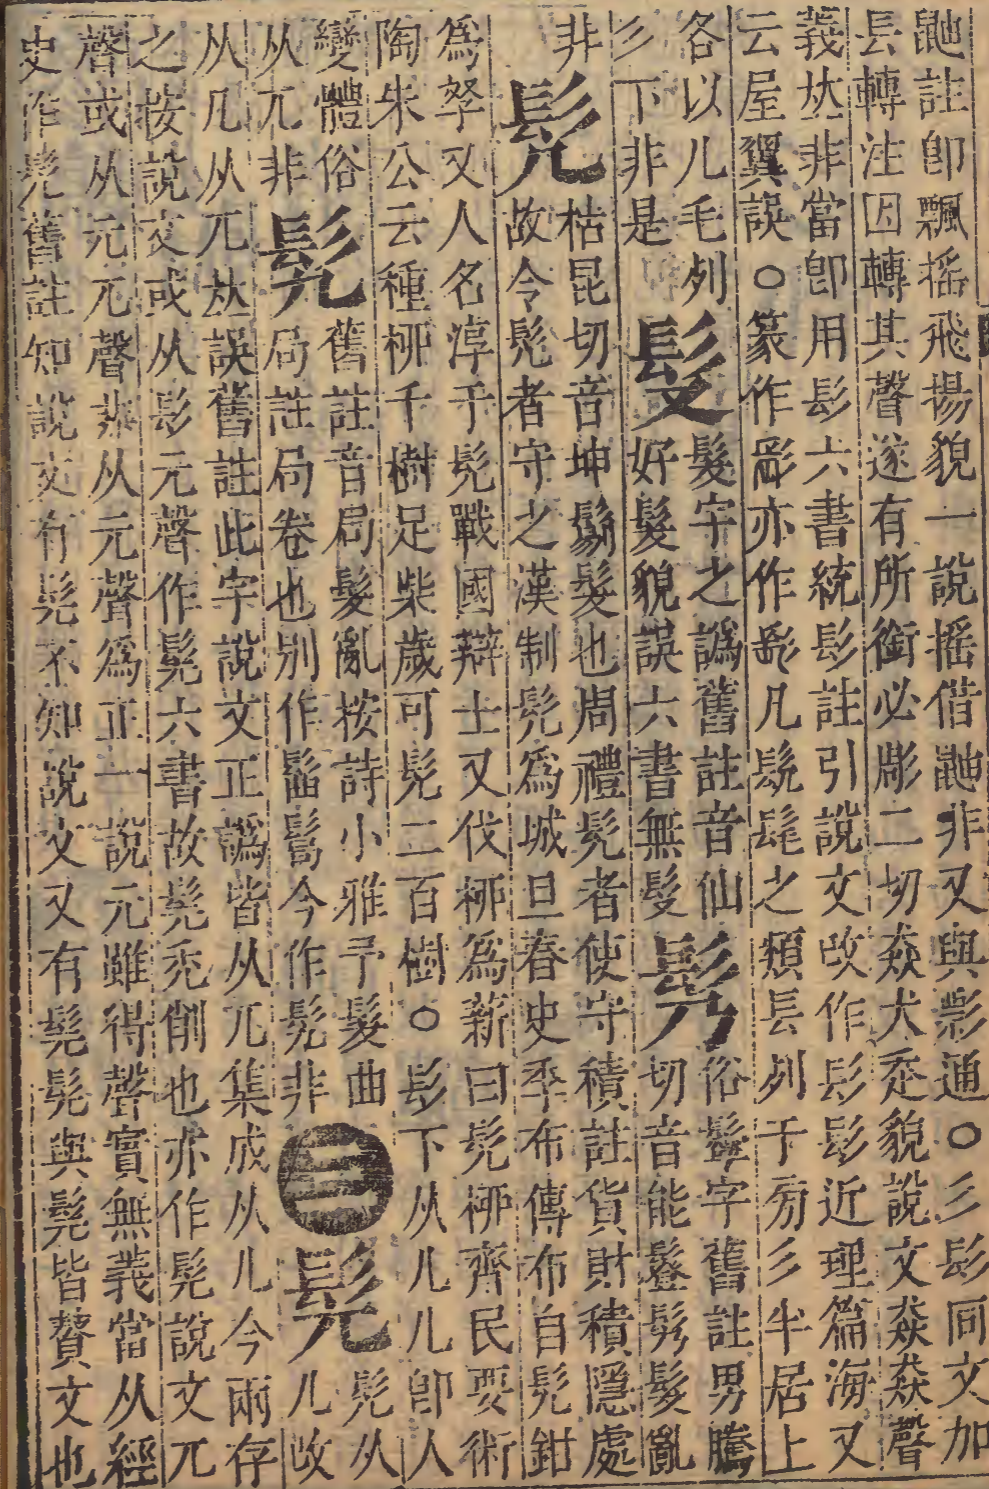 鼬註卽飄搖飛揚貌一說搖借鼬非又與髟通○彡髟同文加
長轉注因轉其聲遂有所銜必彫二切猋犬走貌說文猋猋聲
義𠀤非當卽用髟六書統髟註引說文改作髟髟近理篇海又
云屋翼誤○篆作亦作凡髡髦之類長列于彡半居上
各以儿毛列
彡下非是
髮字之譌舊註音仙
好髮貌誤六書無
俗字舊註男騰
切音能髮亂
非
髠
枯昆切音坤鬀髮也周禮髠者使守積註貨財積隱處
故令髠者守之漢制髠爲城旦舂史季布傳布自髠鉗
爲帑又人名淳于髠戰國辯士又伐柳爲薪曰髠柳齊民要術
陶朱公云種柳千樹足柴歲可髠二百樹○髟下从儿儿卽人
變體俗
从兀非
舊註音局髮亂按詩小雅予髮曲
局註局卷也別作今作非
三
髡
髠从
儿改
从几从兀𠀤誤舊註此字說文正譌皆从兀集成从儿今兩存
之按說文或从髟元聲作髨六書故髨禿削也亦作髡說文兀
聲或从元元聲非从元聲爲正一說元雖得聲實無義當从經
史作髡舊註知說文有髡不知說文又有髨髡與髨皆贅文也